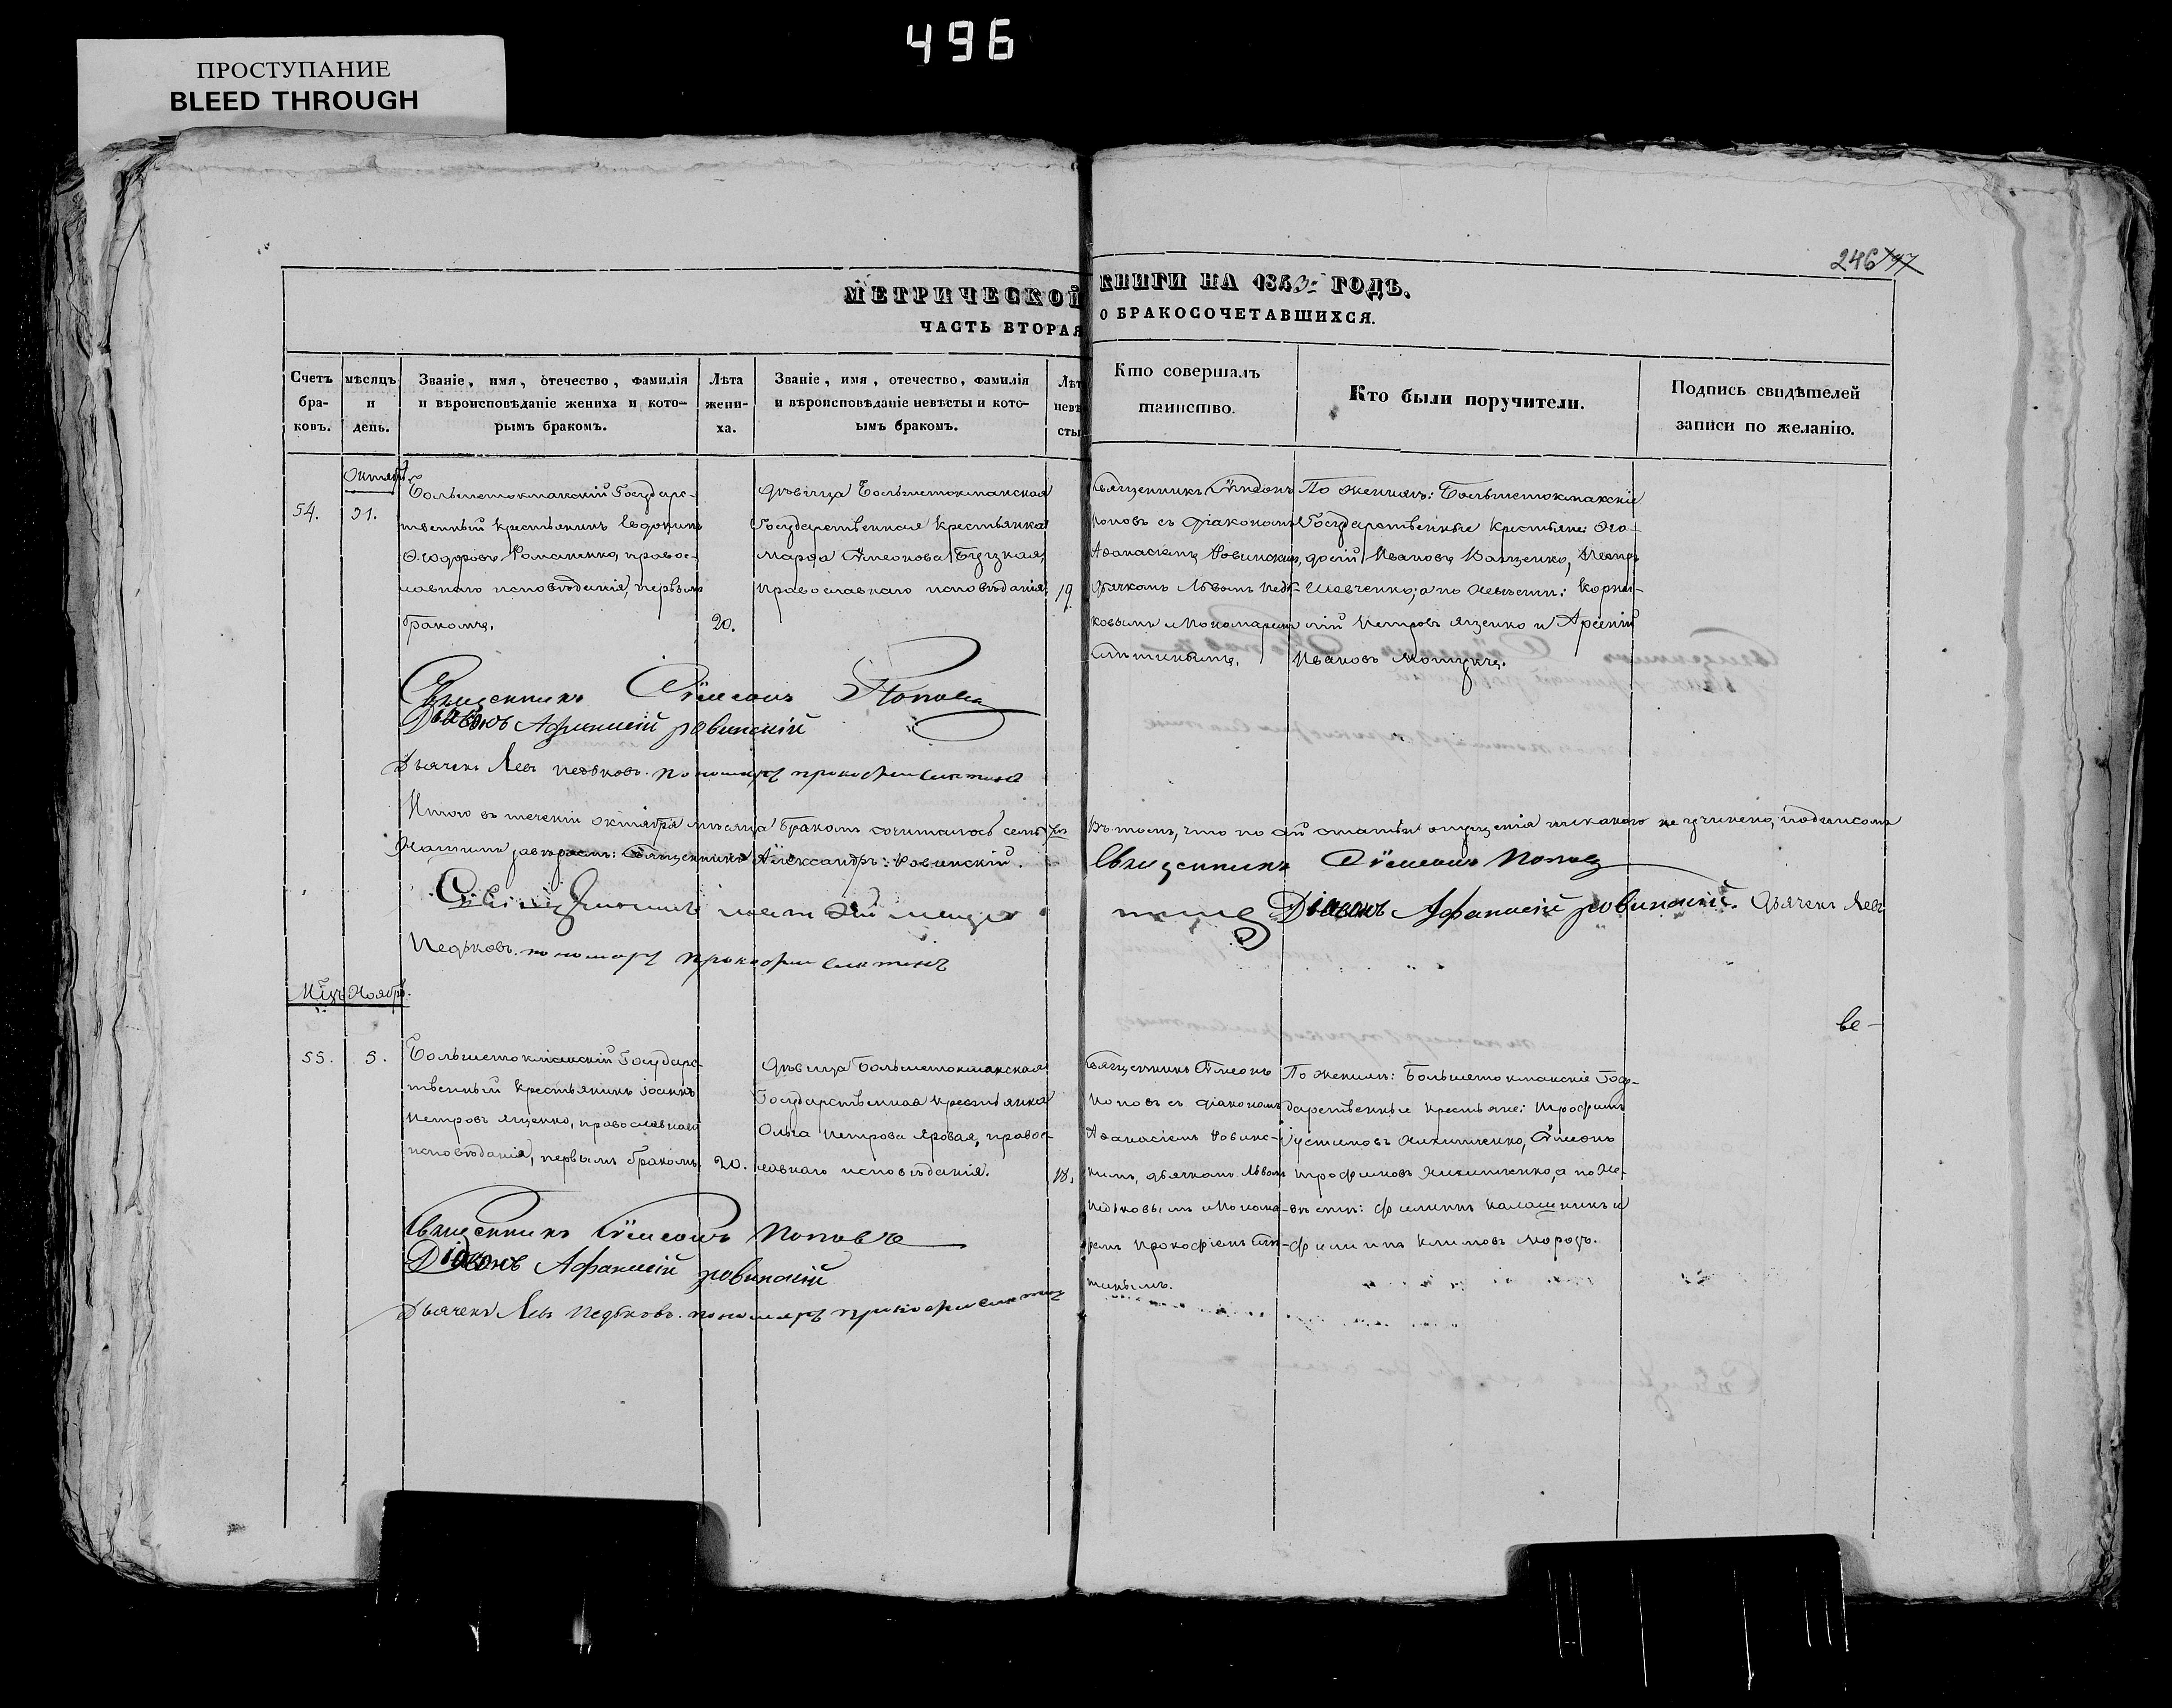 496
ПРОСТУПАНИЕ
BLEED THROUGH
246 197
МЕТРИЧЕСКОЙ КНИГИ НА 1843: ГОДЪ.
ЧАСТЬ ВТОРАЯ О БРАКОСОЧЕТАВШИХСЯ.
Счетъ бра-ковъ.
мѣсяцъ и день.
Званіе, имя, отечество, фамилія
и вѣроисповѣданіе жениха и кото-
рымъ бракомъ.
Лѣта жени-ха.
Званіе, имя, отечество, фамилія
и вѣроисповѣданіе невѣсты и кото-
ымъ бракомъ.
Лѣт невѣ сты
Кто совершалъ
таинство.
Кто были поручители.
Подпись свидѣтелей
записи по желанію.
Октяб
54.
31.
Большетокмакскій Государс-
твенный крестьянинъ Евдокимъ
Ѳеодоровъ Романенко, правос-
лавнаго исповѣданія, первымъ
бракомъ.
20.
Дѣвица Большетокмакская
Государственная крестьянка
Марфа Симеонова Буцкая,
православнаго исповѣданія
19.
Священникъ Симеонъ
Поповъ съ Діакономъ
Аѳанасіемъ Ровинскимъ,
Дьячкомъ Львомъ Педь-
ковымъ и Пономаремъ
По женихѣ: Большетокмакскіе
Государственные крестьяне: Ѳео-
досій Ивановъ Ващенко, Петръ
Шевченко; а по невѣстѣ: Корни-
лій Петровъ Яценко и Арсеній
Ивановъ
Священникъ Сѵмеонъ Поповъ
Діаконъ Афанасій Ровинскій
Дьячекъ Левъ Педьковъ. пономарь прокофий
Итого въ теченіи Октября мѣсяца бракомъ сочиталось семь
Въ томъ, что по сей статьи опущенія никакого не учинено, подписомъ
Нашимъ завѣряемъ: Священникъ Александръ Ровинскій.
Священникъ Сѵмеонъ Поповъ
Діаконъ Афанасій Ровинскій. Дьячекъ Левъ
Педьковъ. пономарь прокофий
Мцъ Ноябрь.
ве-
55.
5.
Большетокмакскій Государс-
твенный крестьянинъ Іоаннъ
Петровъ Яценко, православнаго
исповѣданія, первымъ бракомъ.
20.
Дѣвица Большетокмакская
Государственная крестьянка
Ольга Петрова Яровая, правос-
лавнаго исповѣданія.
18.
Священникъ Симеонъ
Поповъ съ Діакономъ
Аѳанасіемъ Ровинс-
кимъ, дьячкомъ Львомъ
Педьковымъ и Понома-
ремъ Прокофіемъ
По женихѣ: Большетокмакскіе Госу-
дарственные крестьяне: Трофимъ
Устимовъ Никитенко, Симеонъ
Трофимовъ Никитенко, а по Не-
вѣстѣ: Филиппъ Калашникъ и
Филиппъ Климовъ Морозъ.
Священникъ Сѵмеонъ Поповъ
Діаконъ Афанасій Ровинскій
Дьячекъ Левъ Педьковъ. пономарь прокофий